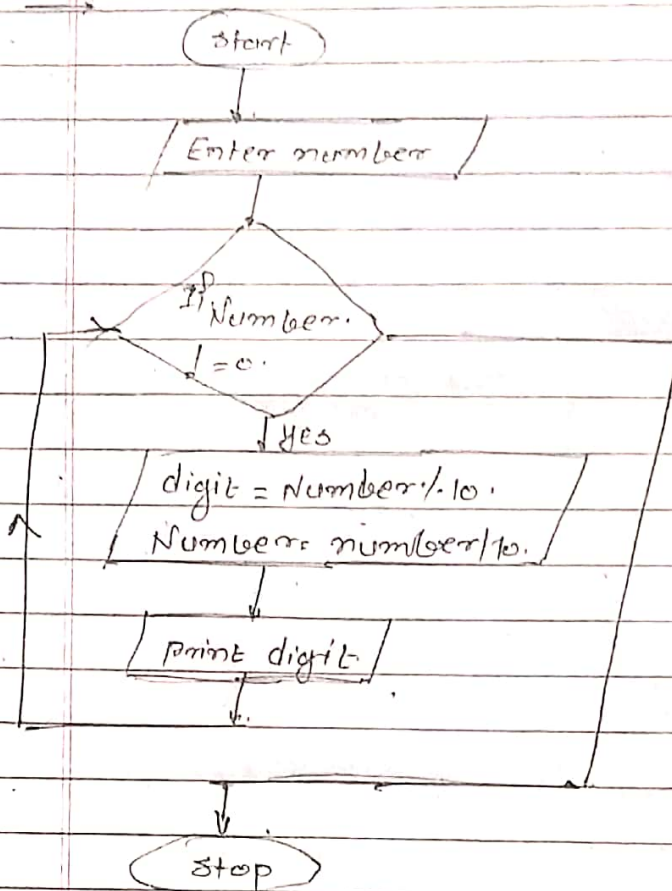 Start
Enter number
If Number.
! = 0.
yes
digit = Number % 10.
Number = number/10.
print digit.
Stop